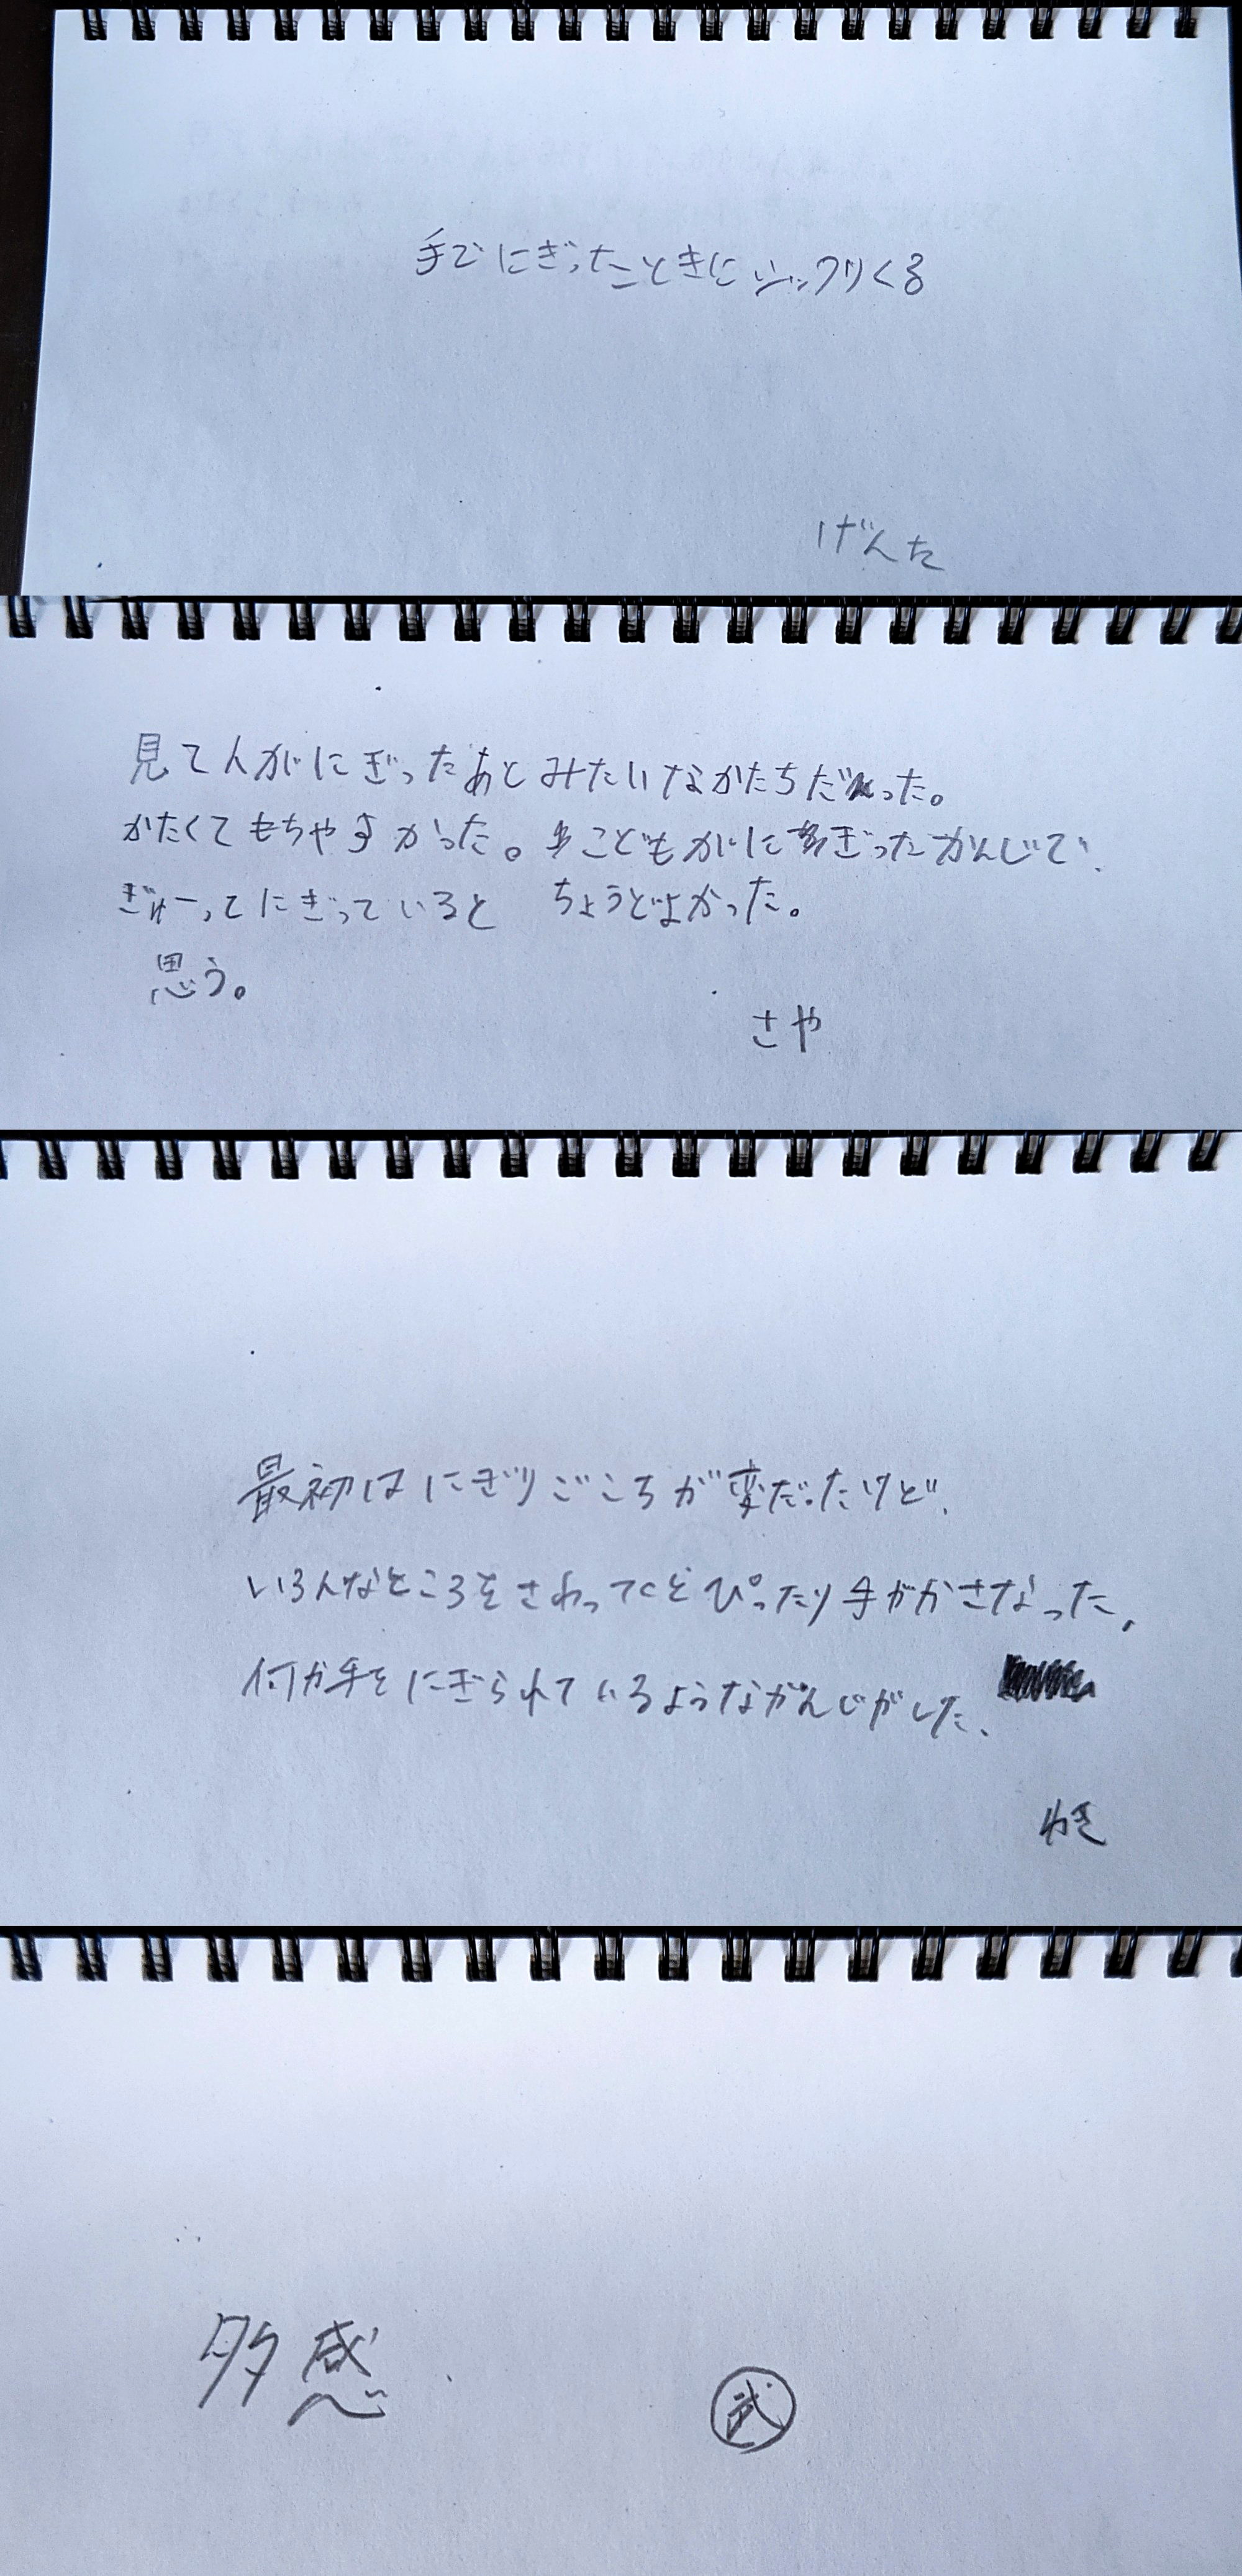 手でにぎったときにシックリくる
げんた
見て人がにぎったあとみたいなかたちだった。
かたくてもちやすかった。こどもがにぎったかんじで、
ぎゅーってにぎっていると ちょうどよかった。
思う。
さや
最初はにぎりごころが変だったけど、
いろんなところをさわってくとぴったり手がかさなった。
何か手をにぎられているようなかんじがした、
多感
武